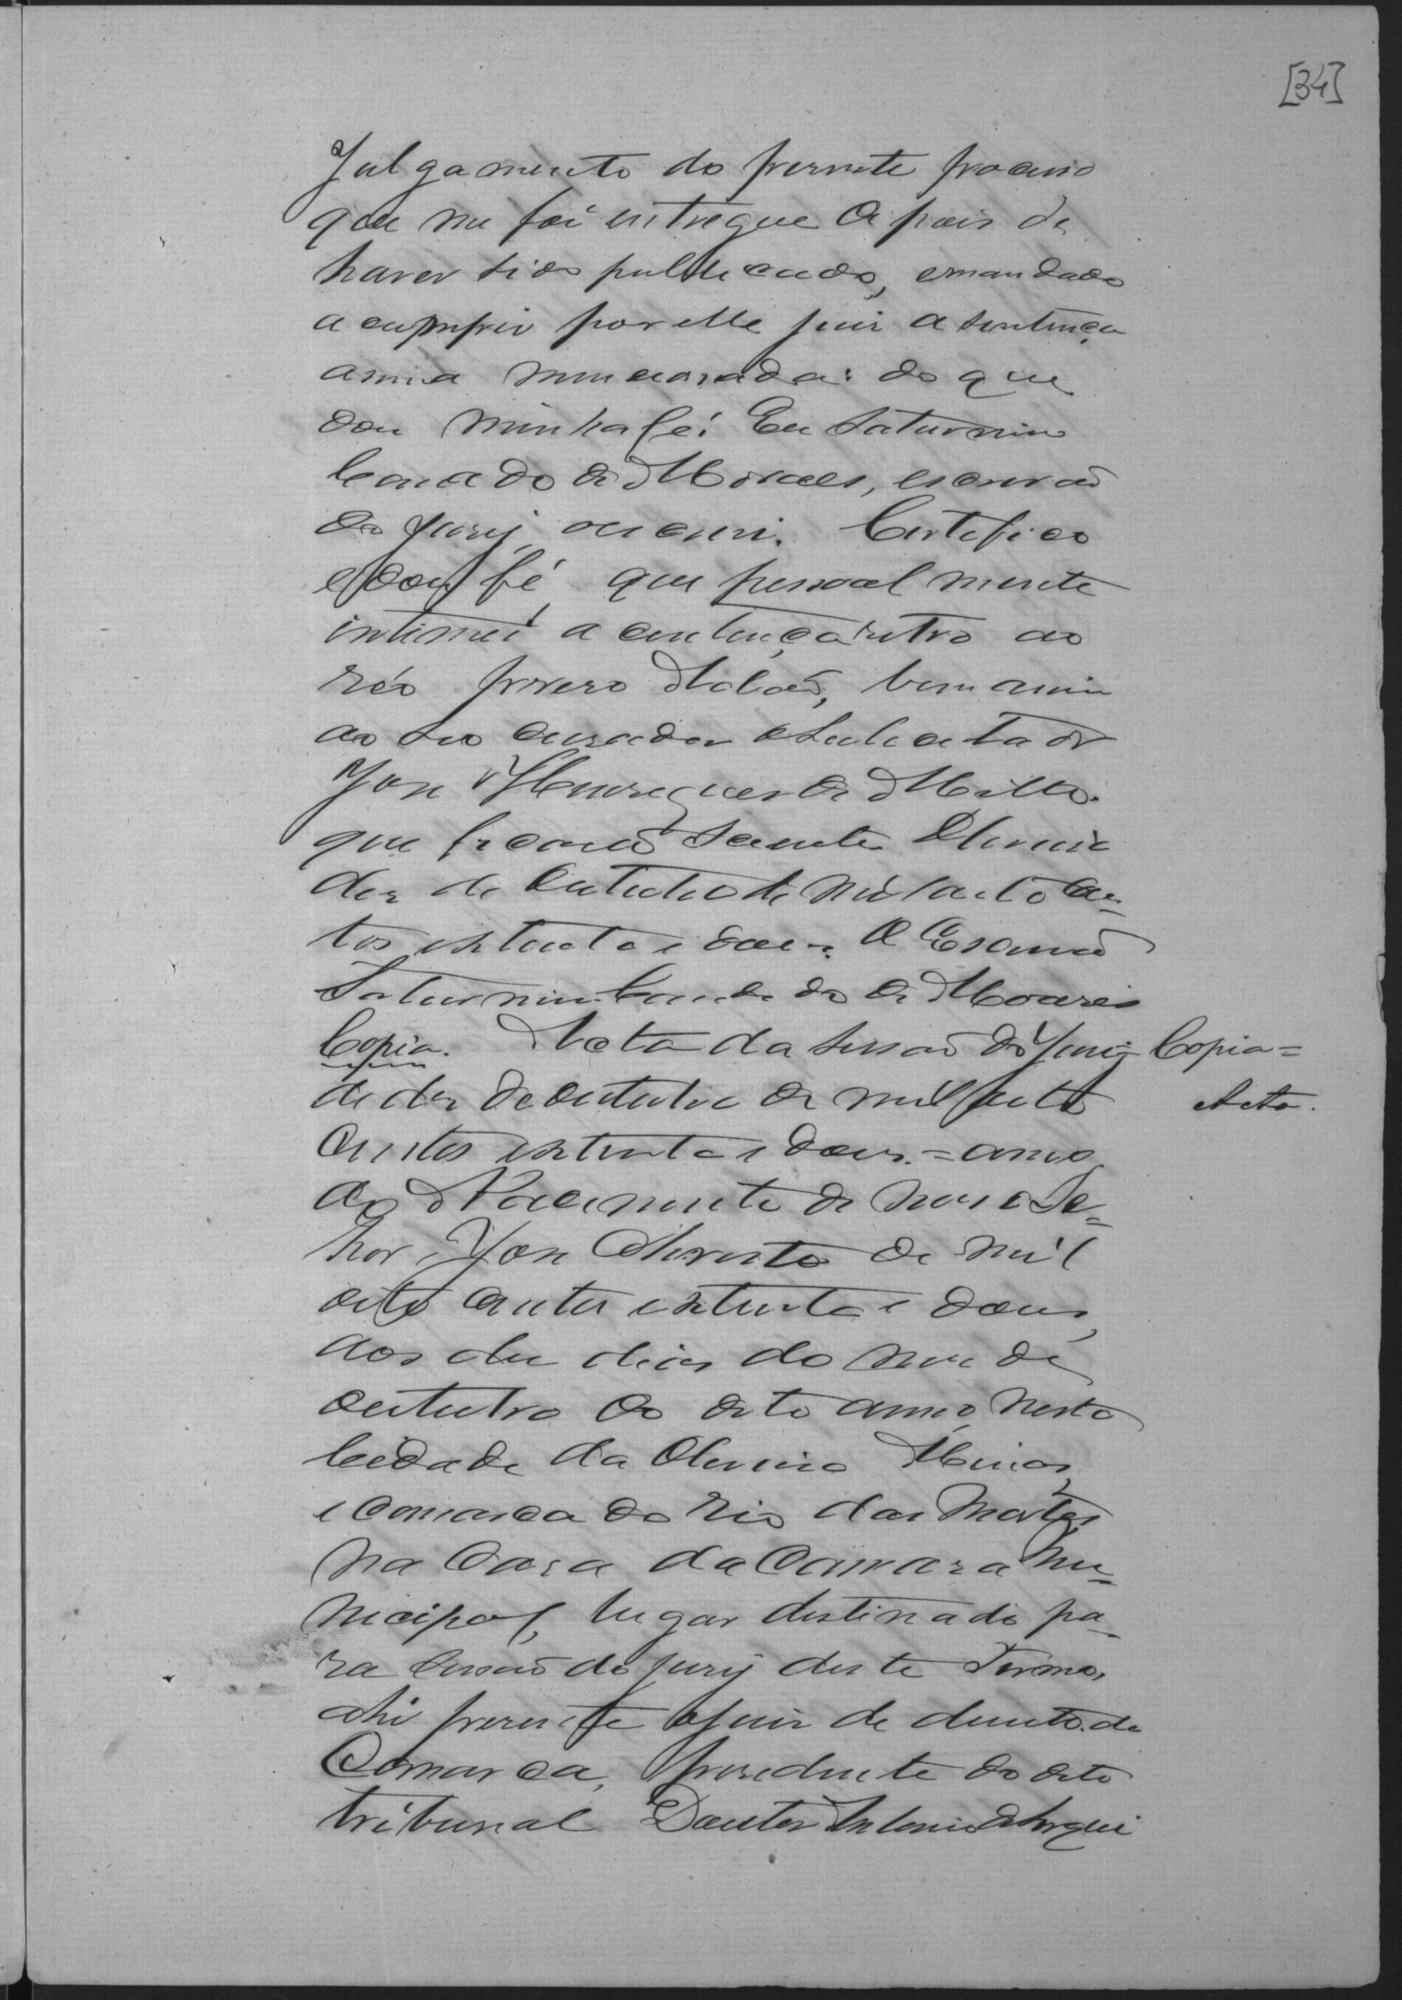 [34]
Julgamento do presente processo
que me foi entregue depois de
haver sido publicado, e mandado
a cumprir por elle juiz a sentença
acima mencionada: do que
dou minha fé. Eu Saturnino
Candado de Moraes, escrivaõ
do jury, escrevi. Certifico
e dou fé, que pessoalmente
intimei a centença retro ao
réo preso Adaõ, bem assim
ao seo curador o Solicitador
José Henriques de Mello.
que ficaraõ scientes Oliveira
dez de Outubro de mil oito cen-
tos e settenta e dous. O Escrivaõ
Saturnino Candado de Moraes
Copia. Acta da sessaõ do Jury Copia =
de dez de outubro de mil oito Acta.
centos e settenta e dous. = anno
do Nascimento de Nosso Se=
nhor Jesu Christo de mil
oito centos e settenta e dous,
aos dez dias do mez de
outubro do dito anno, nesta
Cidade da Oliveira Minas,
e comarca do Rio das Mortes
na Casa da Camara Mu=
nicipal, lugar destinado pa-
ra sessaõ do jury deste Termo,
ahi presente o juiz de direito da
Comarca, presidente do dito
tribunal Doutor Antonio